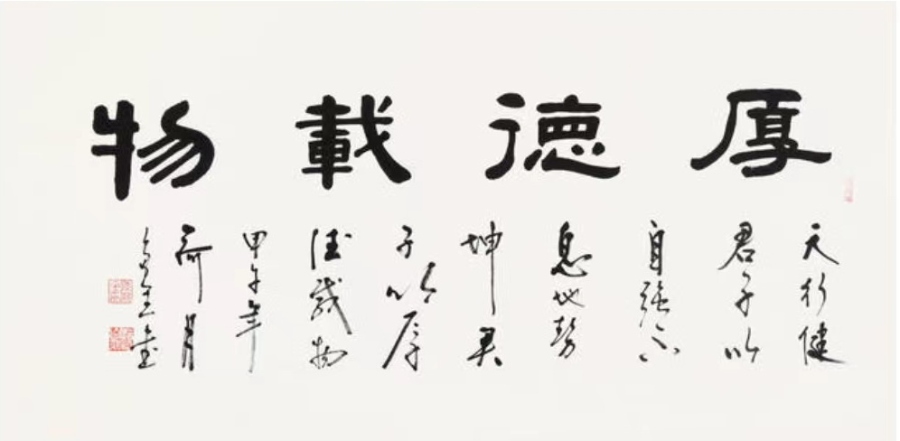 厚德載物
天行健
君子以
自强不
息地势
坤君
子以厚
德载物
甲午年